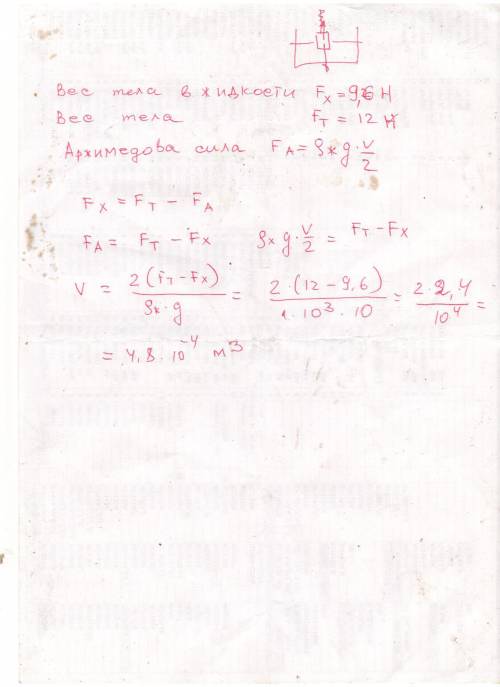 Вес тела в жидкости Fх = 9,6 Н
Вес тела Fт = 12 Н
Архимедова сила FА = ρж g · V/2
Fх = Fт − FА
FА = Fт − Fх ρж g · V/2 = Fт − Fх
V = 2(Fт − Fх)/ρж · g = 2 · (12 − 9,6)/1 · 10³ · 10 = 2 · 2,4/10⁴ =
= 4,8 · 10⁻⁴ м³